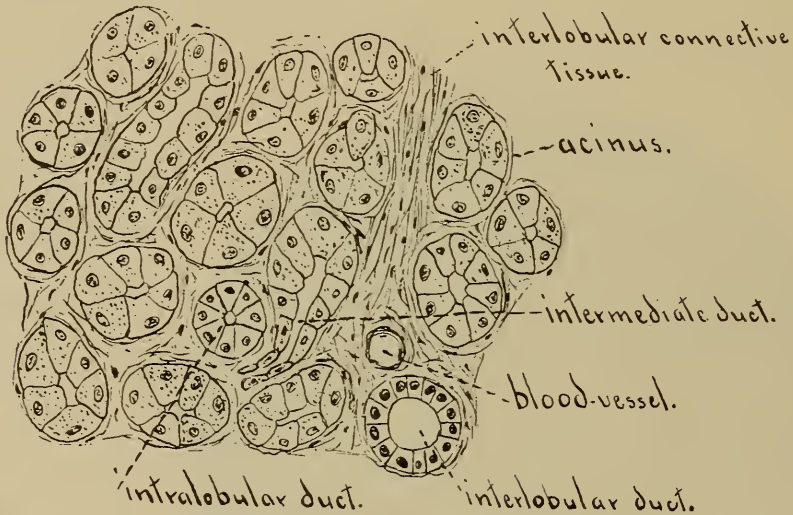 interlobular connective
tissue.
acinus.
intermediate duct.
blood-vessel.
intralobular duct.
interlobular duct.